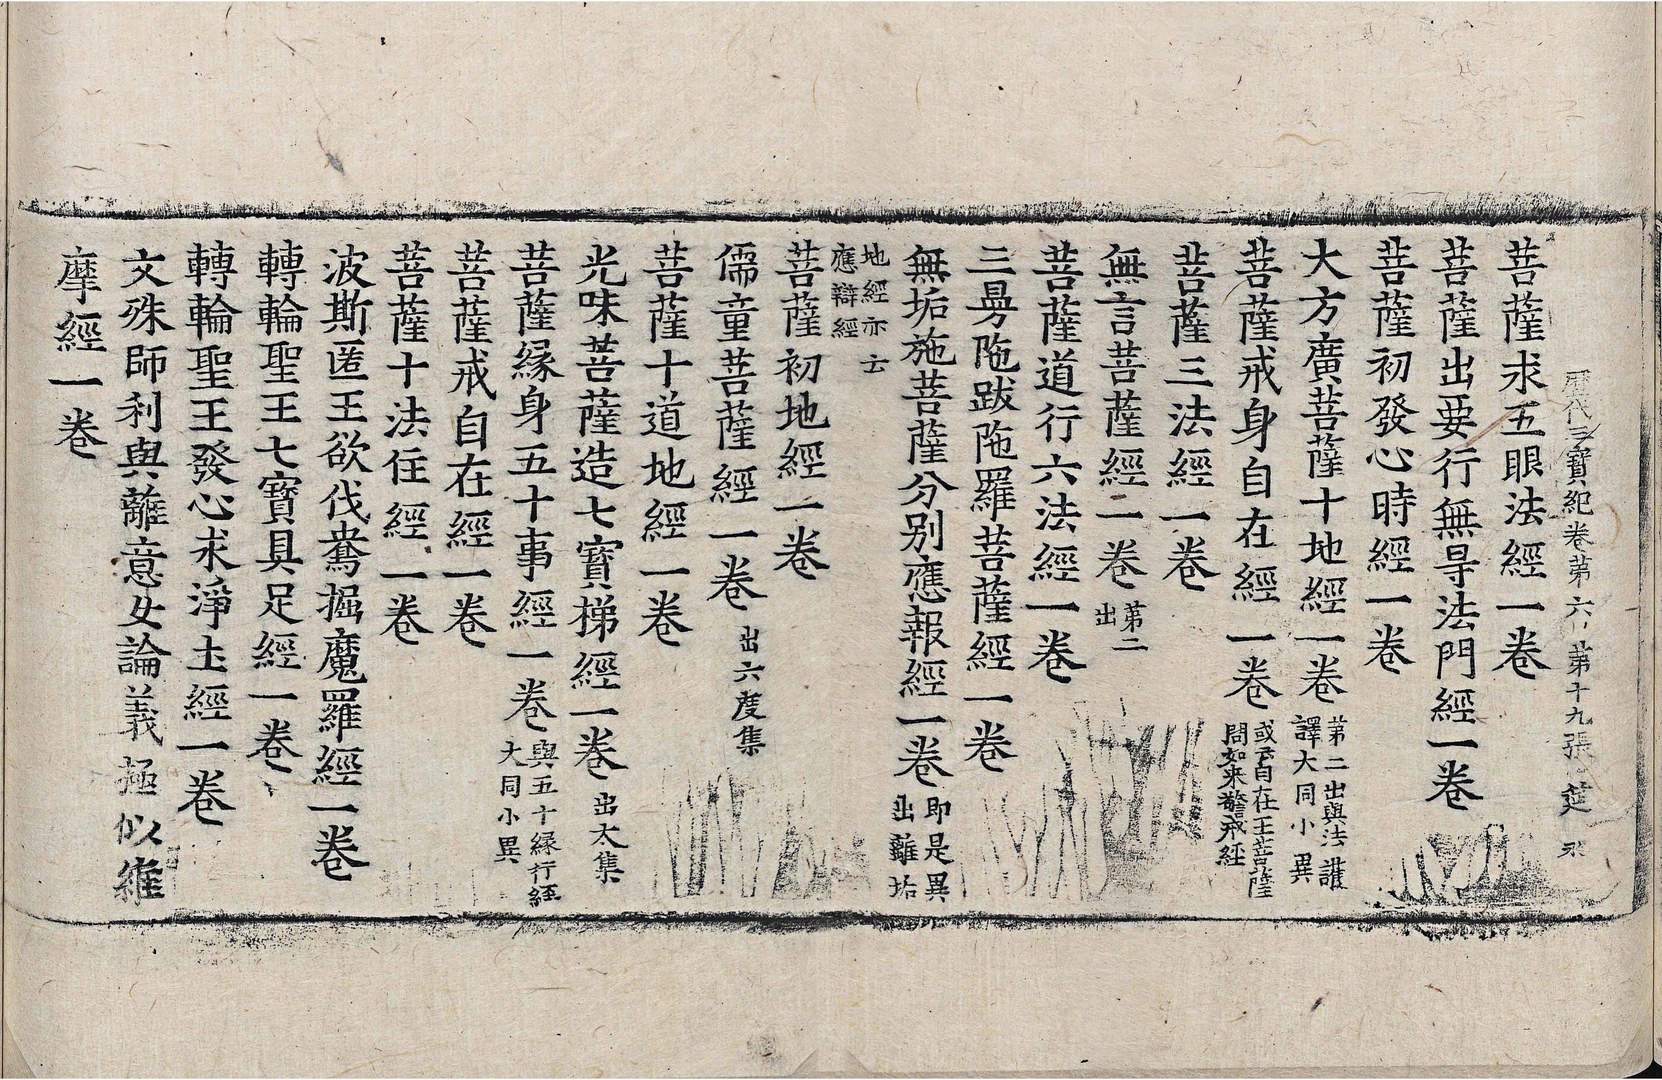 歷代三寶紀卷第六 第十九張 筵
菩薩求五眼法經一卷
菩薩出要行無㝵法門經一卷
菩薩初發心時經一卷
大方廣菩薩十地經一卷 第二出與法護
譯大同小異
菩薩戒身自在經一卷 或云自在王菩薩
問如來警戒經
菩薩三法經一卷
無言菩薩經二卷 第二
出
菩薩道行六法經一卷
三曼陁跋陁羅菩薩經一卷
無垢施菩薩分別應報經一卷 即是異
出離垢
地經亦云
應辯經
菩薩初地經一卷
儒童菩薩經一卷 出六度集
菩薩十道地經一卷
光味菩薩造七寶梯經一卷 出大集
菩薩緣身五十事經一卷 與五十緣行經
大同小異
菩薩戒自在經一卷
菩薩十法住經一卷
波斯匿王欲伐鴦掘魔羅經一卷
轉輪聖王七寶具足經一卷
轉輪聖王發心求淨土經一卷
文殊師利與離意女論義極似維
摩經一卷